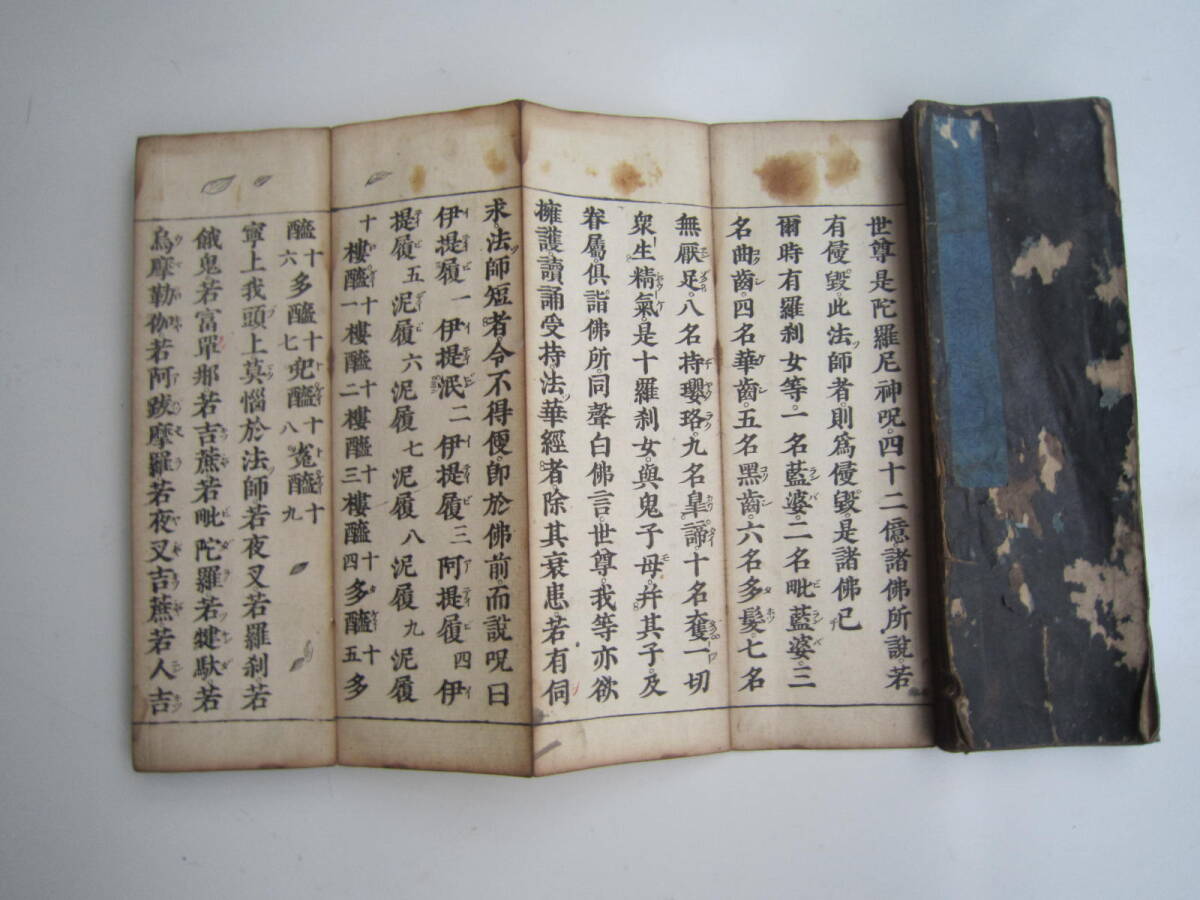 世尊是陀羅尼神呪。四十二億諸佛所説若
有侵毀。此法師者。則爲侵毀。是諸佛已
爾時有羅刹女等。一名藍婆。二名毗藍婆。三
名曲齒。四名華齒。五名黑齒。六名多髮。七名
無厭足。八名持瓔珞。九名皐諦。十名奪一切
衆生精氣。是十羅刹女。與鬼子母。幷其子。及
眷屬。俱詣佛所。同聲白佛言。世尊。我等亦欲
擁護讀誦受持。法華經者。除其衰患。若有伺
求。法師短者。令不得便。卽於佛前。而説呪曰
伊提履 一 伊提泯 二 伊提履 三 阿提履 四 伊
提履 五 泥履 六 泥履 七 泥履 八 泥履 九 泥履
十 樓醯 十一 樓醯 十二 樓醯 十三 樓醯 十四 多醯 十五 多
醯 十六 多醯 十七 兜醯 十八 㝹醯 十九
寧上我頭上。莫惱於法師。若夜叉若羅刹若
餓鬼若富單那若吉蔗若毗陀羅若犍馱若
烏摩勒伽若阿跋摩羅若夜叉吉蔗若人吉